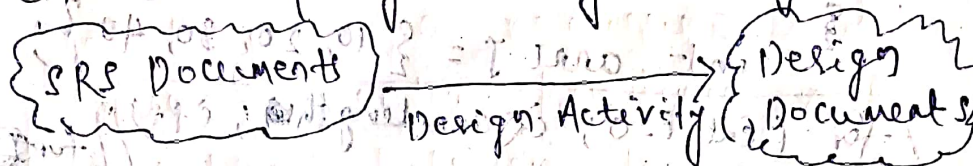 SRS Documents
Design Activity
Design
Documents